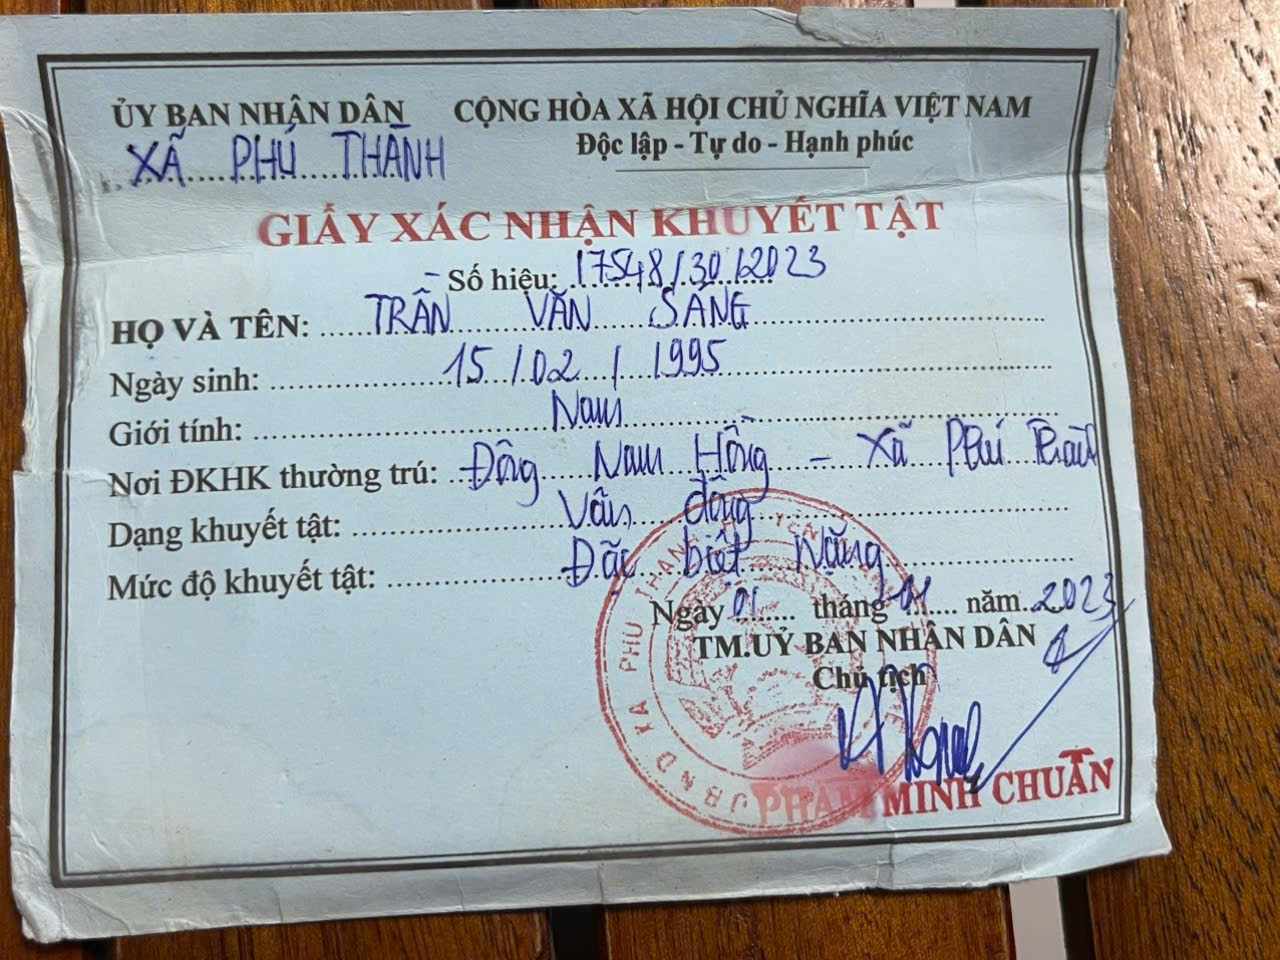 ỦY BAN NHÂN DÂN
XÃ PHÚ THÀNH
CỘNG HÒA XÃ HỘI CHỦ NGHĨA VIỆT NAM
Độc lập - Tự do - Hạnh phúc
GIẤY XÁC NHẬN KHUYẾT TẬT
Số hiệu: 17548/30/2023
HỌ VÀ TÊN: TRẦN VĂN SÁNG
Ngày sinh: 15/02/1995
Giới tính: Nam
Nơi ĐKHK thường trú: Đông Nam Hồng - Xã Phú
Dạng khuyết tật: Vận động
Mức độ khuyết tật: Đặc biệt Nặng
Ngày 01 tháng 01 năm 2023
TM.UỶ BAN NHÂN DÂN
Chủ tịch
PHẠM MINH CHUẨN
UBND XÃ PHÚ THÀNH